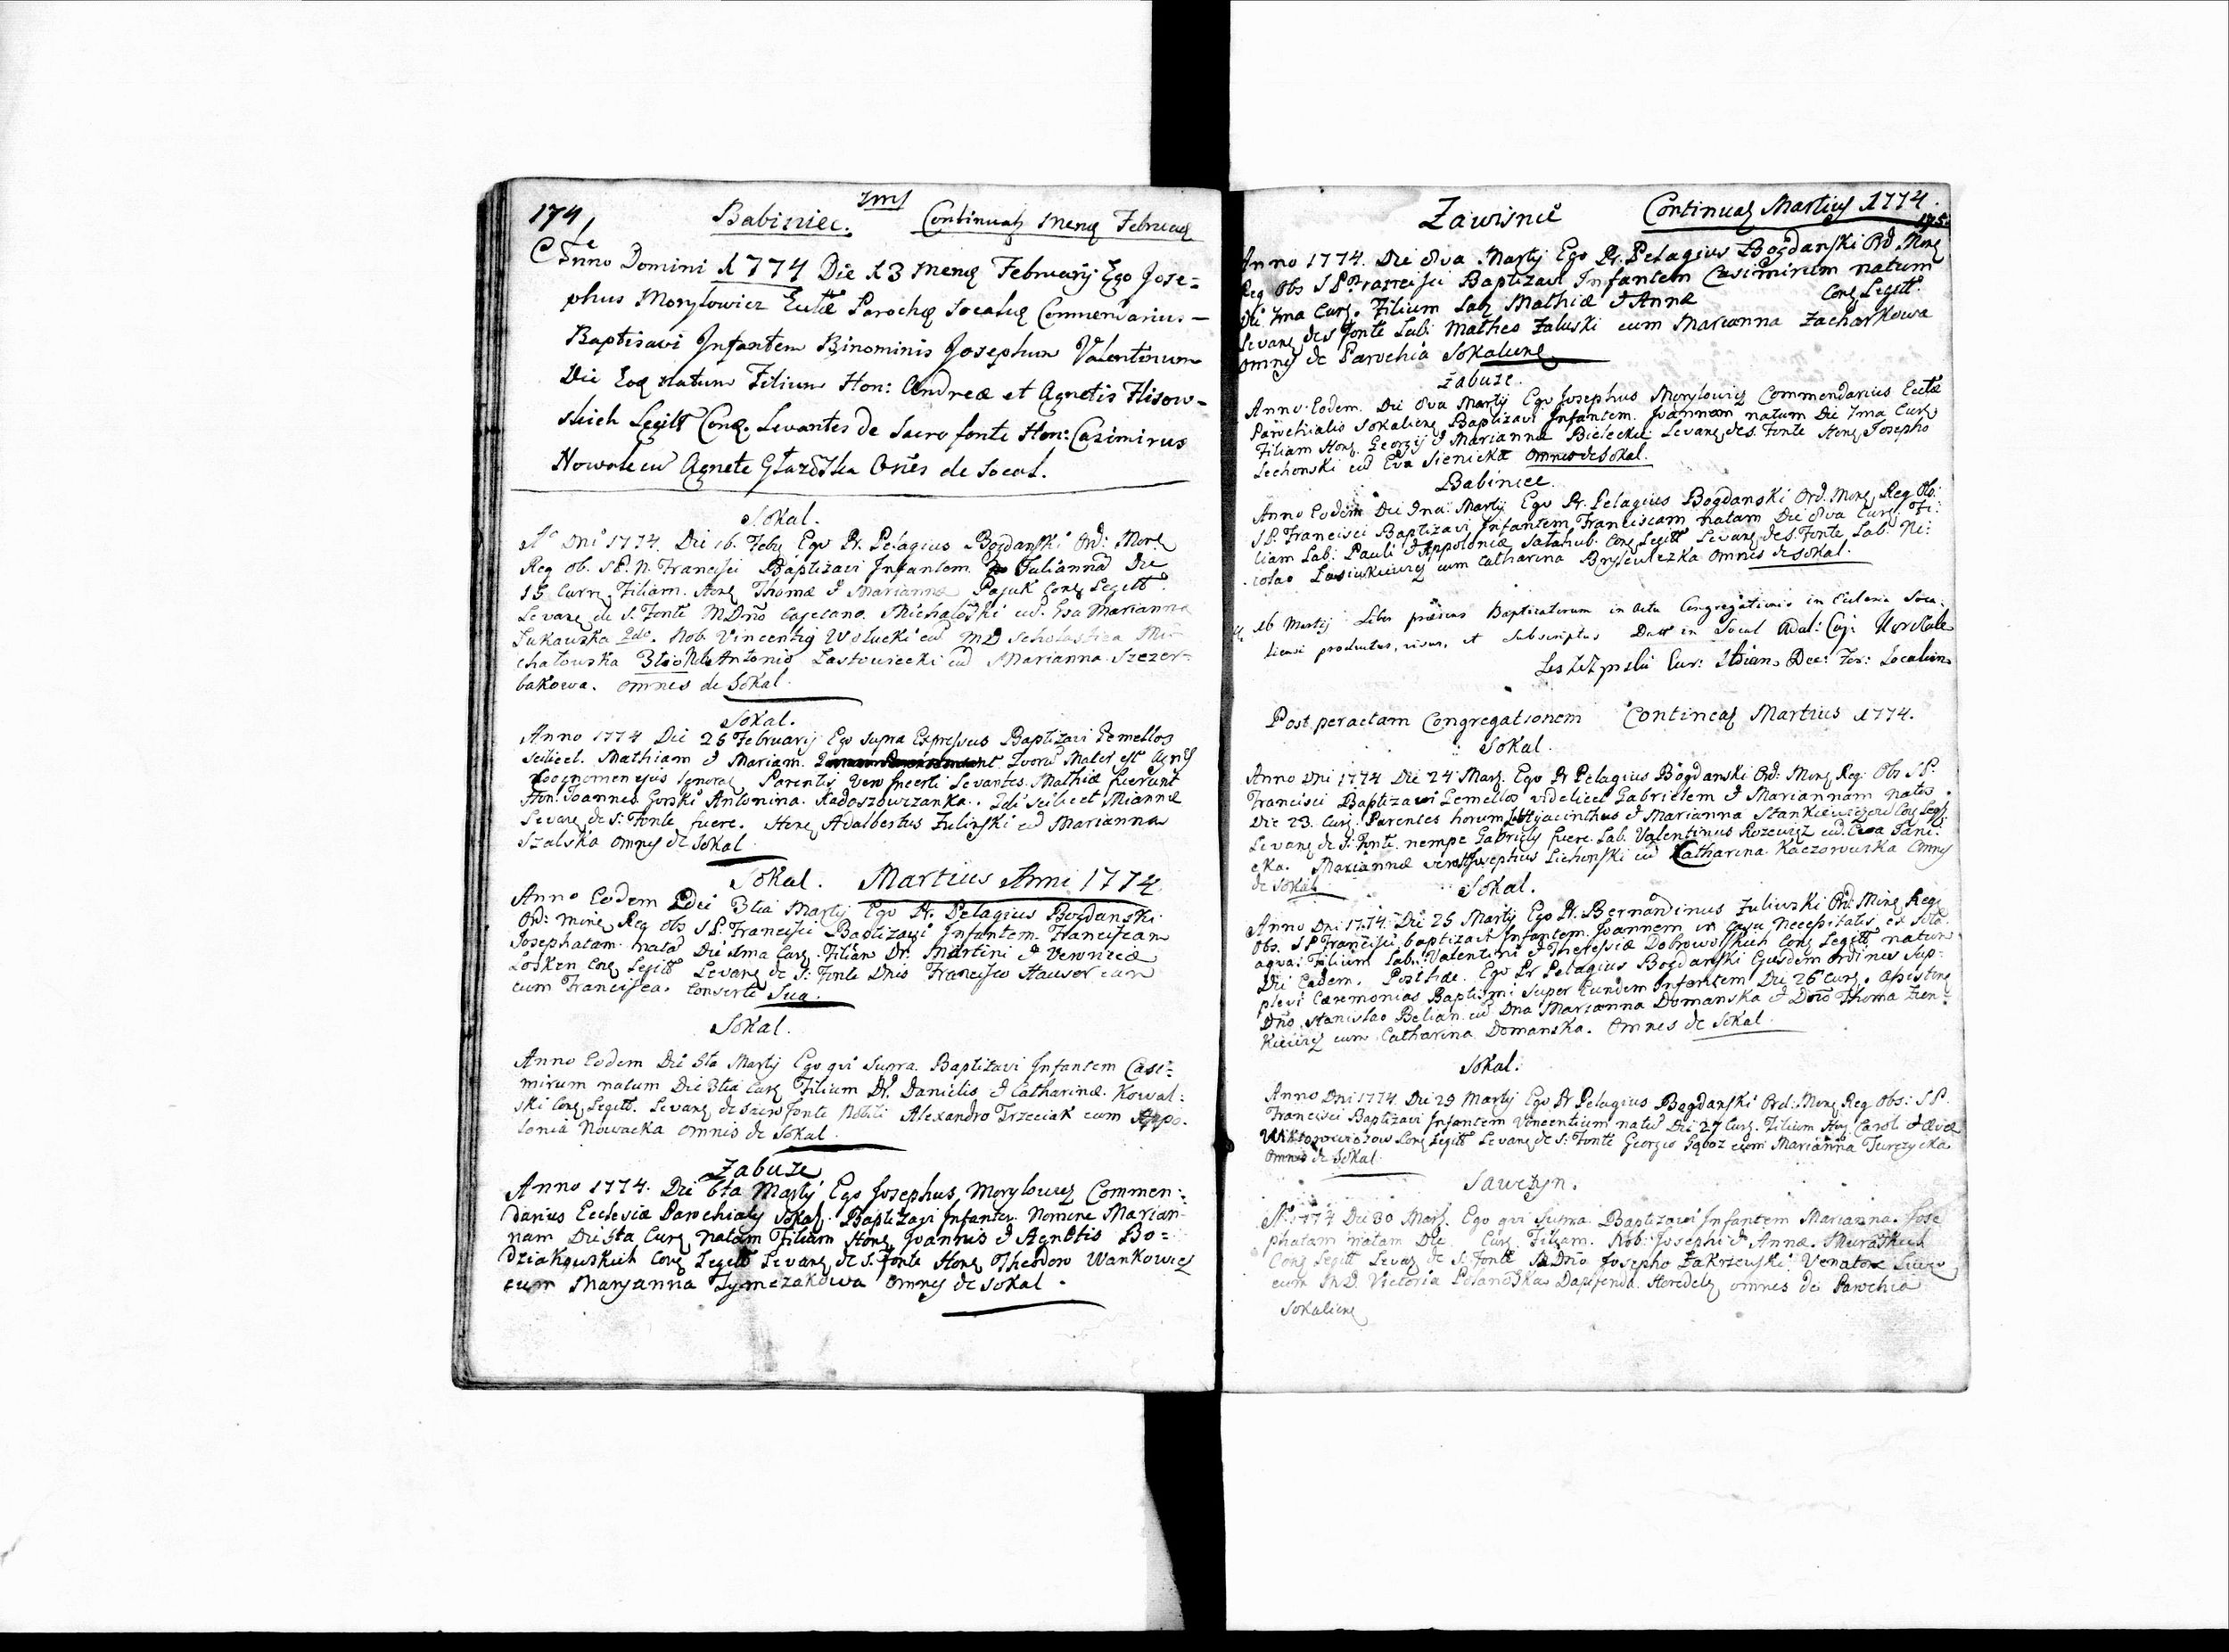 174
Babiniec. Continuat Mens Februar
Anno Domini 1774 Die 13 Mens Februarij Ego Jose=
phus Morylowicz Eccłæ Paroch Socalię Commendarius —
Baptisavi Infantem Binominis Josephum Valentinum
Die Eoq natum Filium Hon: Andreæ et Agnetis Flisow=
skich Legitt Conq. Levantes de Sacro fonte Hon: Casimirus
Nowak cū Agnete Omēs de Socal.
Sokal.
Aº Dni 1774. Die 16. Feby Ego Pr. Pelagius Bogdanski Ord: Min
Reg ob. S.P. N. Francisci Baptizavi Infantem Julianna Die
15 Curn. Filiam. Hon Thomæ & Mariannæ Pajuk Conj Legitt.
Levan de S. Fonte MDno Cajetano. Michałoski cū. Marianna
Łukawska 2do. Nob. Vincentij Wołucki cū MD Scholastica Mi
chałowska 3tio Antonio Lastowiecki cū Marianna Szczer=
bakowa. omnes de Sokal.
Sokal.
Anno 1774 Die 25 Februarij Ego Supra Expressus Baptizavi Gemellos
Scilicet. Mathiam & Mariam. Quorū Mater est Agnes
Cognomen ejus ignorat Parentis Vero Incerti Levantes. Mathiæ fuerunt
Hon: Joannes Gorski Antonina. Radoszowczanka. 2di Scilicet Mannæ
Levan de S: Fonte fuere. Hon Adalbertus Zulinski cū Marianna
Szalska omnes de Sokal
Sokal. Martius Anni 1774
Anno Eodem Die 3tia Martij Ego Pr. Pelagius Bogdanski
Ord: Min Reg obs S.P. Francisci Baptizavi Infantem. Franciscam
Josephatam. natā Die 1ma Cur. Filiam Dr. Martini & Veronicæ
Losken Conj Legitt Levan de S: Fonte Dnis Francisco Hauser cum
cum Francisca. Consorte Sua.
Sokal.
Anno Eodem Die 6ta Martij Ego qui Supra. Baptizavi Infantem Casi=
mirum natum Die 3tia Cur Filium Dr. Danielis & Catharinæ. Kowal=
ski Conj Legitt. Levan de Sacro fonte Nobili Alexandro Trzeciak cum Appo.
lonia Nowacka omnis de Sokal.
Zabuze
Anno 1774. Die 6ta Martij Ego Josephus Morylowicz Commen=
darius Ecclesiæ Parochialis Sokal. Baptizavi Infantem. Nomine Marian
nam Die 5ta Cur natam Filiam Hon Joannis & Agnetis Bo=
dziakowskich Conj Legitt Levan de S: Fonte Hon Theodoro Wankowicz
cum Maryanna Tymczakowa omnes de Sokal.
Zawisnie Continuat Martius 1774.
175
Anno 1774. Die 8va. Martij Ego Pr. Pelagius Bogdanski Ord. Min
Reg Obs S P Francisci Baptizavi Infantem Casimirum natum
Die 7ma Cur. Filium Lab Mathiæ & Annæ Conj Legitt.
Levan de S Fonte Lab: Matheo Zaluski cum Marianna Zacharkowa
omnes de Parochia Sokaliens
Zabuze.
Anno Eodem. Die 8va Martij Ego Josephus Morylowicz Commendarius Eccłæ
Parochialis Sokaliens Baptizavi Infantem. Joannam natum Die 7ma Cur
Filiam Hon. Georgij & Marianna Bielecki Levan de S. Fonte Hon Josepho
Lechonski cū Eva Sienicka omnes de Sokal.
Babiniec.
Anno Eodem Die 9na Martij Ego Pr. Pelagius Bogdanski Ord. Min Reg Ob:
S.P. Francisci Baptizavi Infantem Franciscam natam Die 8va Cur Fi:
liam Lab: Pauli & Appoloniæ Satahub. Conj Legitt Levan de S. Fonte Lab. Ni:
colao Lasiukiewicz cum Catharina omnes de Sokal.
16 Martij Liber præsens Baptizatorum in Actu Congregationis in Ecclesia Soca
liensi productus, visus, et Subscriptus Datt in Socal
Leszczynski Cur:
Post peractam Congregationem Contineat Martius 1774.
Sokal.
Anno Dni 1774 Die 24 Mart. Ego Pr Pelagius Bogdanski Ord: Min Reg: Obs S P.
Francisci Baptizavi Gemellos videlicet Gabrielem & Mariannam natos
Die 23. Cur. Parentes horum Hyacinthus & Marianna Stankiewiczow Conj Legitt
Levan de S: Fonte. nempe Gabrielis fuere. Lab. Valentinus Rozewicz cū. Ewa Jani:
cka. Mariannæ vero Josephus Lichonski cū Katharina Kaczorowska omnes
de Sokal
Sokal.
Anno Dni 1774. Die 25 Martij Ego Pr. Bernardinus Zuliwski Ord: Min Reg
Obs. S P Francisci baptizavi Infantem. Joannem in Casu Necessitatis ex sola
aqva: Filium Lab. Valentini & Theressiæ Dobrowolskich Conj Legitt, natum
Die Eadem. Postide. Ego Pr Pelagius Bogdanski Ejusdem Ordinis Sup=
plevi Cæremonias Baptismi Super Eundem Infantem Die 26 Cur.
Dno Stanislao Belian cū Dna Marianna Domanska & Dno Thoma Zien:
kiewicz cum Catharina Domanska. Omnes de Sokal.
Sokal.
Anno Dni 1774. Die 29 Martij Ego Pr Pelagius Bogdanski Ord: Min Reg Obs: S P.
Francisci Baptizavi Infantem Vincentium natū Die 27 Cur. Filium Hon Caroli & Evæ
Wiktorowiczow Conj Legitt Levan de S: Fonte Georgio cum Marianna Turczycka
Omnes de Sokal.
Sawczyn.
Aº 1774 Die 30 Mart. Ego qui Supra. Baptizavi Infantem Marianna. Jose
phatam natam Die Cur Filiam. Nob: Josephi & Annæ. Muratkich
Conj Legitt Levan de S: Fonte MDno Josepho Zakrzewski. Venatore
cum MD Victoria omnes de Parochia
Sokaliens